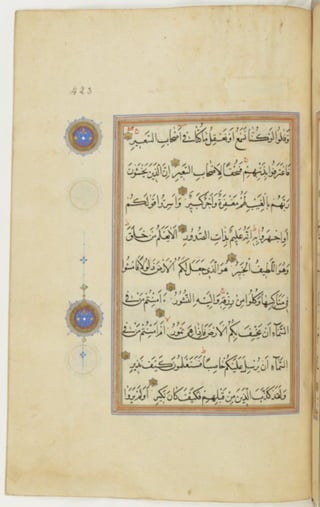 423
وَقَالُوا لَوْ كُنَّا نَسْمَعُ أَوْ نَعْقِلُ مَا كُنَّا فِي أَصْحَابِ السَّعِيرِ
فَاعْتَرَفُوا بِذَنْبِهِمْ فَسُحْقًا لِأَصْحَابِ السَّعِيرِ إِنَّ الَّذِينَ يَخْشَوْنَ
رَبَّهُمْ بِالْغَيْبِ لَهُمْ مَغْفِرَةٌ وَأَجْرٌ كَبِيرٌ وَأَسِرُّوا قَوْلَكُمْ
أَوِ اجْهَرُوا بِهِ إِنَّهُ عَلِيمٌ بِذَاتِ الصُّدُورِ أَلَا يَعْلَمُ مَنْ خَلَقَ
وَهُوَ اللَّطِيفُ الْخَبِيرُ هُوَ الَّذِي جَعَلَ لَكُمُ الْأَرْضَ ذَلُولًا فَامْشُوا
فِي مَنَاكِبِهَا وَكُلُوا مِنْ رِزْقِهِ وَإِلَيْهِ النُّشُورُ ءَأَمِنْتُمْ مَنْ فِي
السَّمَاءِ أَنْ يَخْسِفَ بِكُمُ الْأَرْضَ فَإِذَا هِيَ تَمُورُ أَمْ أَمِنْتُمْ مَنْ فِي
السَّمَاءِ أَنْ يُرْسِلَ عَلَيْكُمْ حَاصِبًا فَسَتَعْلَمُونَ كَيْفَ نَذِيرِ
وَلَقَدْ كَذَّبَ الَّذِينَ مِنْ قَبْلِهِمْ فَكَيْفَ كَانَ نَكِيرِ أَوَلَمْ يَرَوْا